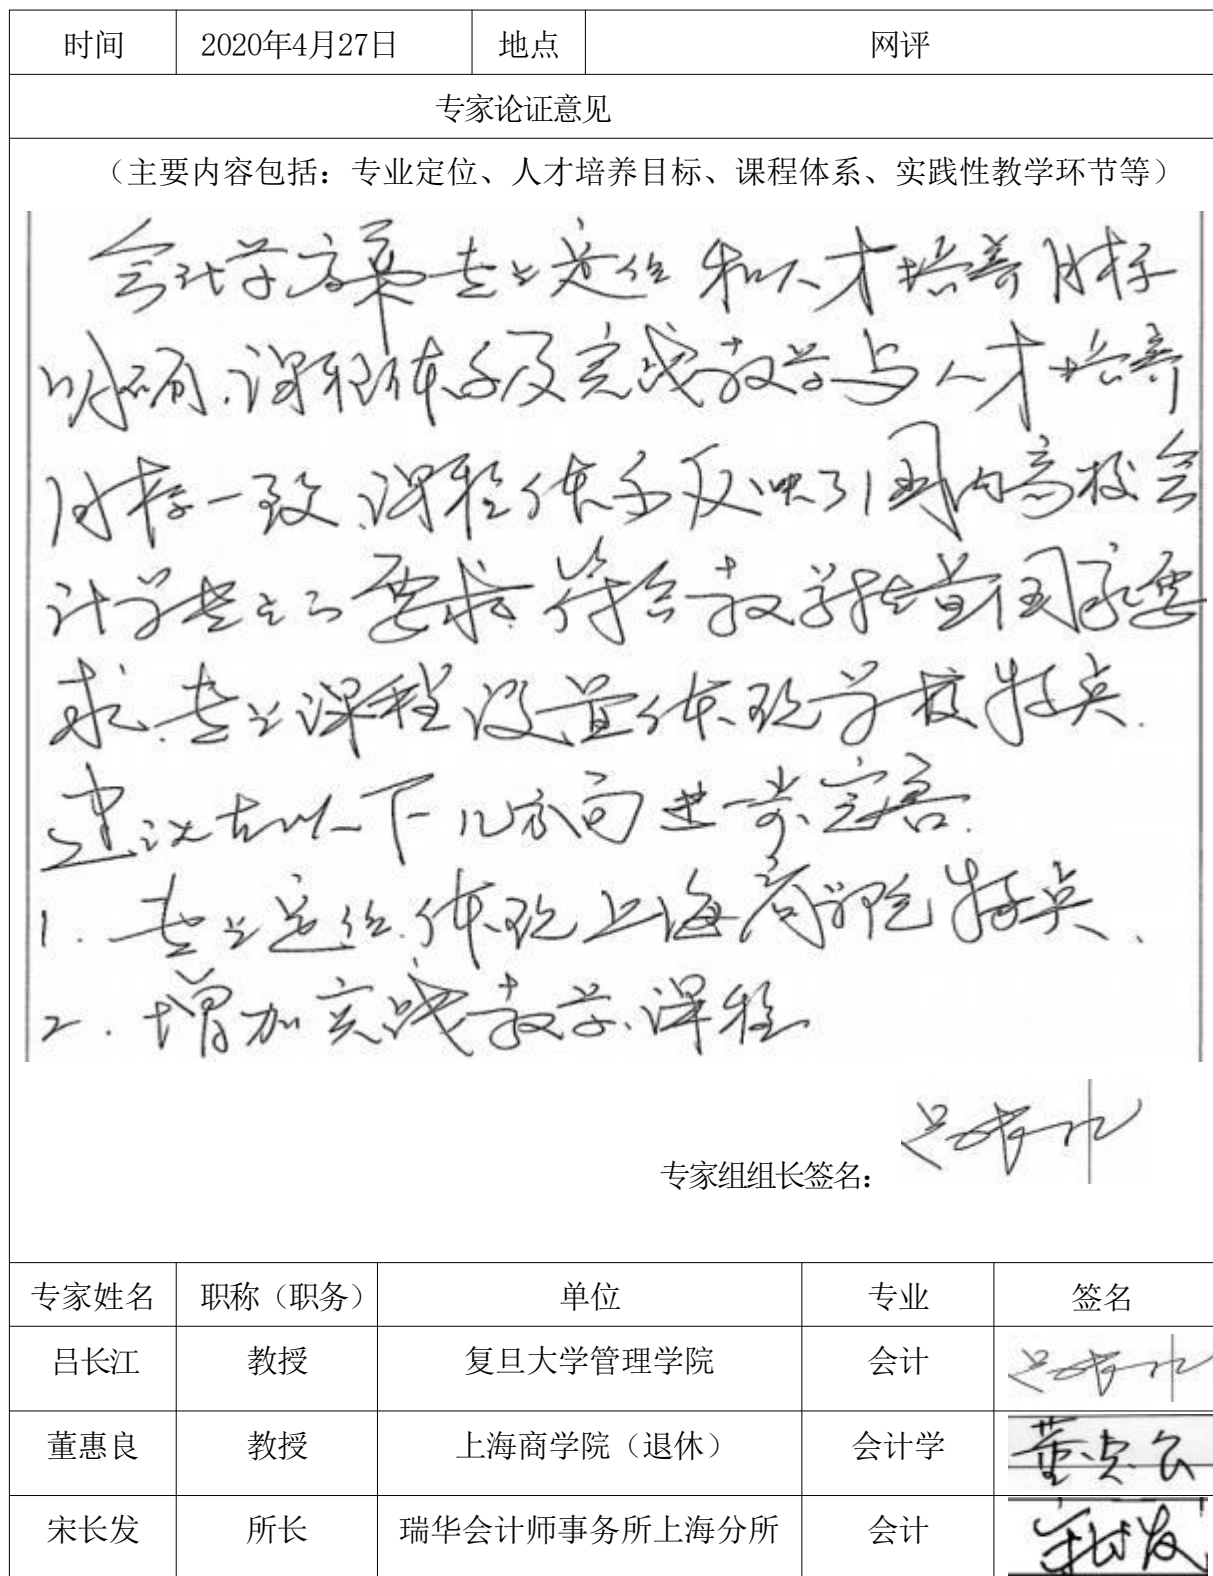 时间 2020年4月27日 地点 网评
专家论证意见
（主要内容包括：专业定位、人才培养目标、课程体系、实践性教学环节等）
会计学方案专业定位和人才培养目标
明确、课程体系及实践教学与人才培养
目标一致、课程体系反映了国内高校会
计学专业的要求、符合教学质量国家要
求、专业课程设置体现学校特点.
建议在以下几方面进一步完善.
1. 专业定位体现上海商学院特点、
2. 增加实践教学课程
专家组组长签名： 吕长江
专家姓名 职称（职务） 单位 专业 签名
吕长江 教授 复旦大学管理学院 会计 吕长江
董惠良 教授 上海商学院（退休） 会计学 董惠良
宋长发 所长 瑞华会计师事务所上海分所 会计 宋长发